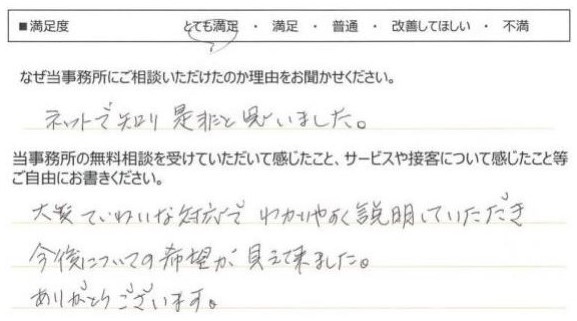 ■満足度 とても満足 ・ 満足 ・ 普通 ・ 改善してほしい ・ 不満
なぜ当事務所にご相談いただけたのか理由をお聞かせください。
ネットで知り是非と思いました。
当事務所の無料相談を受けていただいて感じたこと、サービスや接客について感じたこと等
ご自由にお書きください。
大変ていねいな対応で わかりやすく説明していただき
今後についての希望が見えて来ました。
ありがとうございます。